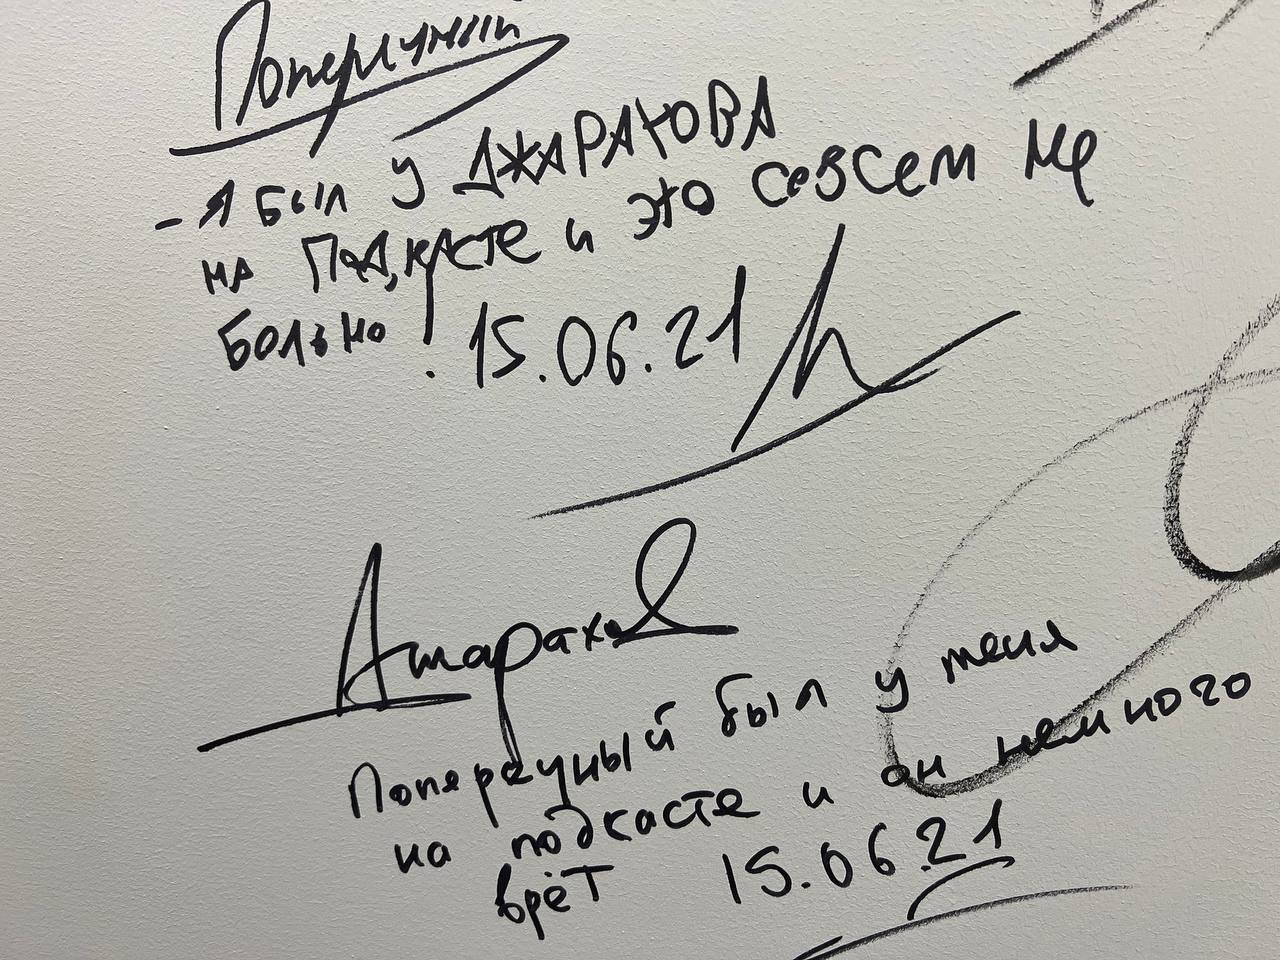 Поперечный
- Я был у ДЖАРАХОВА
на ПОДкасте и это совсем не
больно! 15.06.21
Джарахов
Поперечный был у меня
на подкасте и он немного
врёт 15.06.21